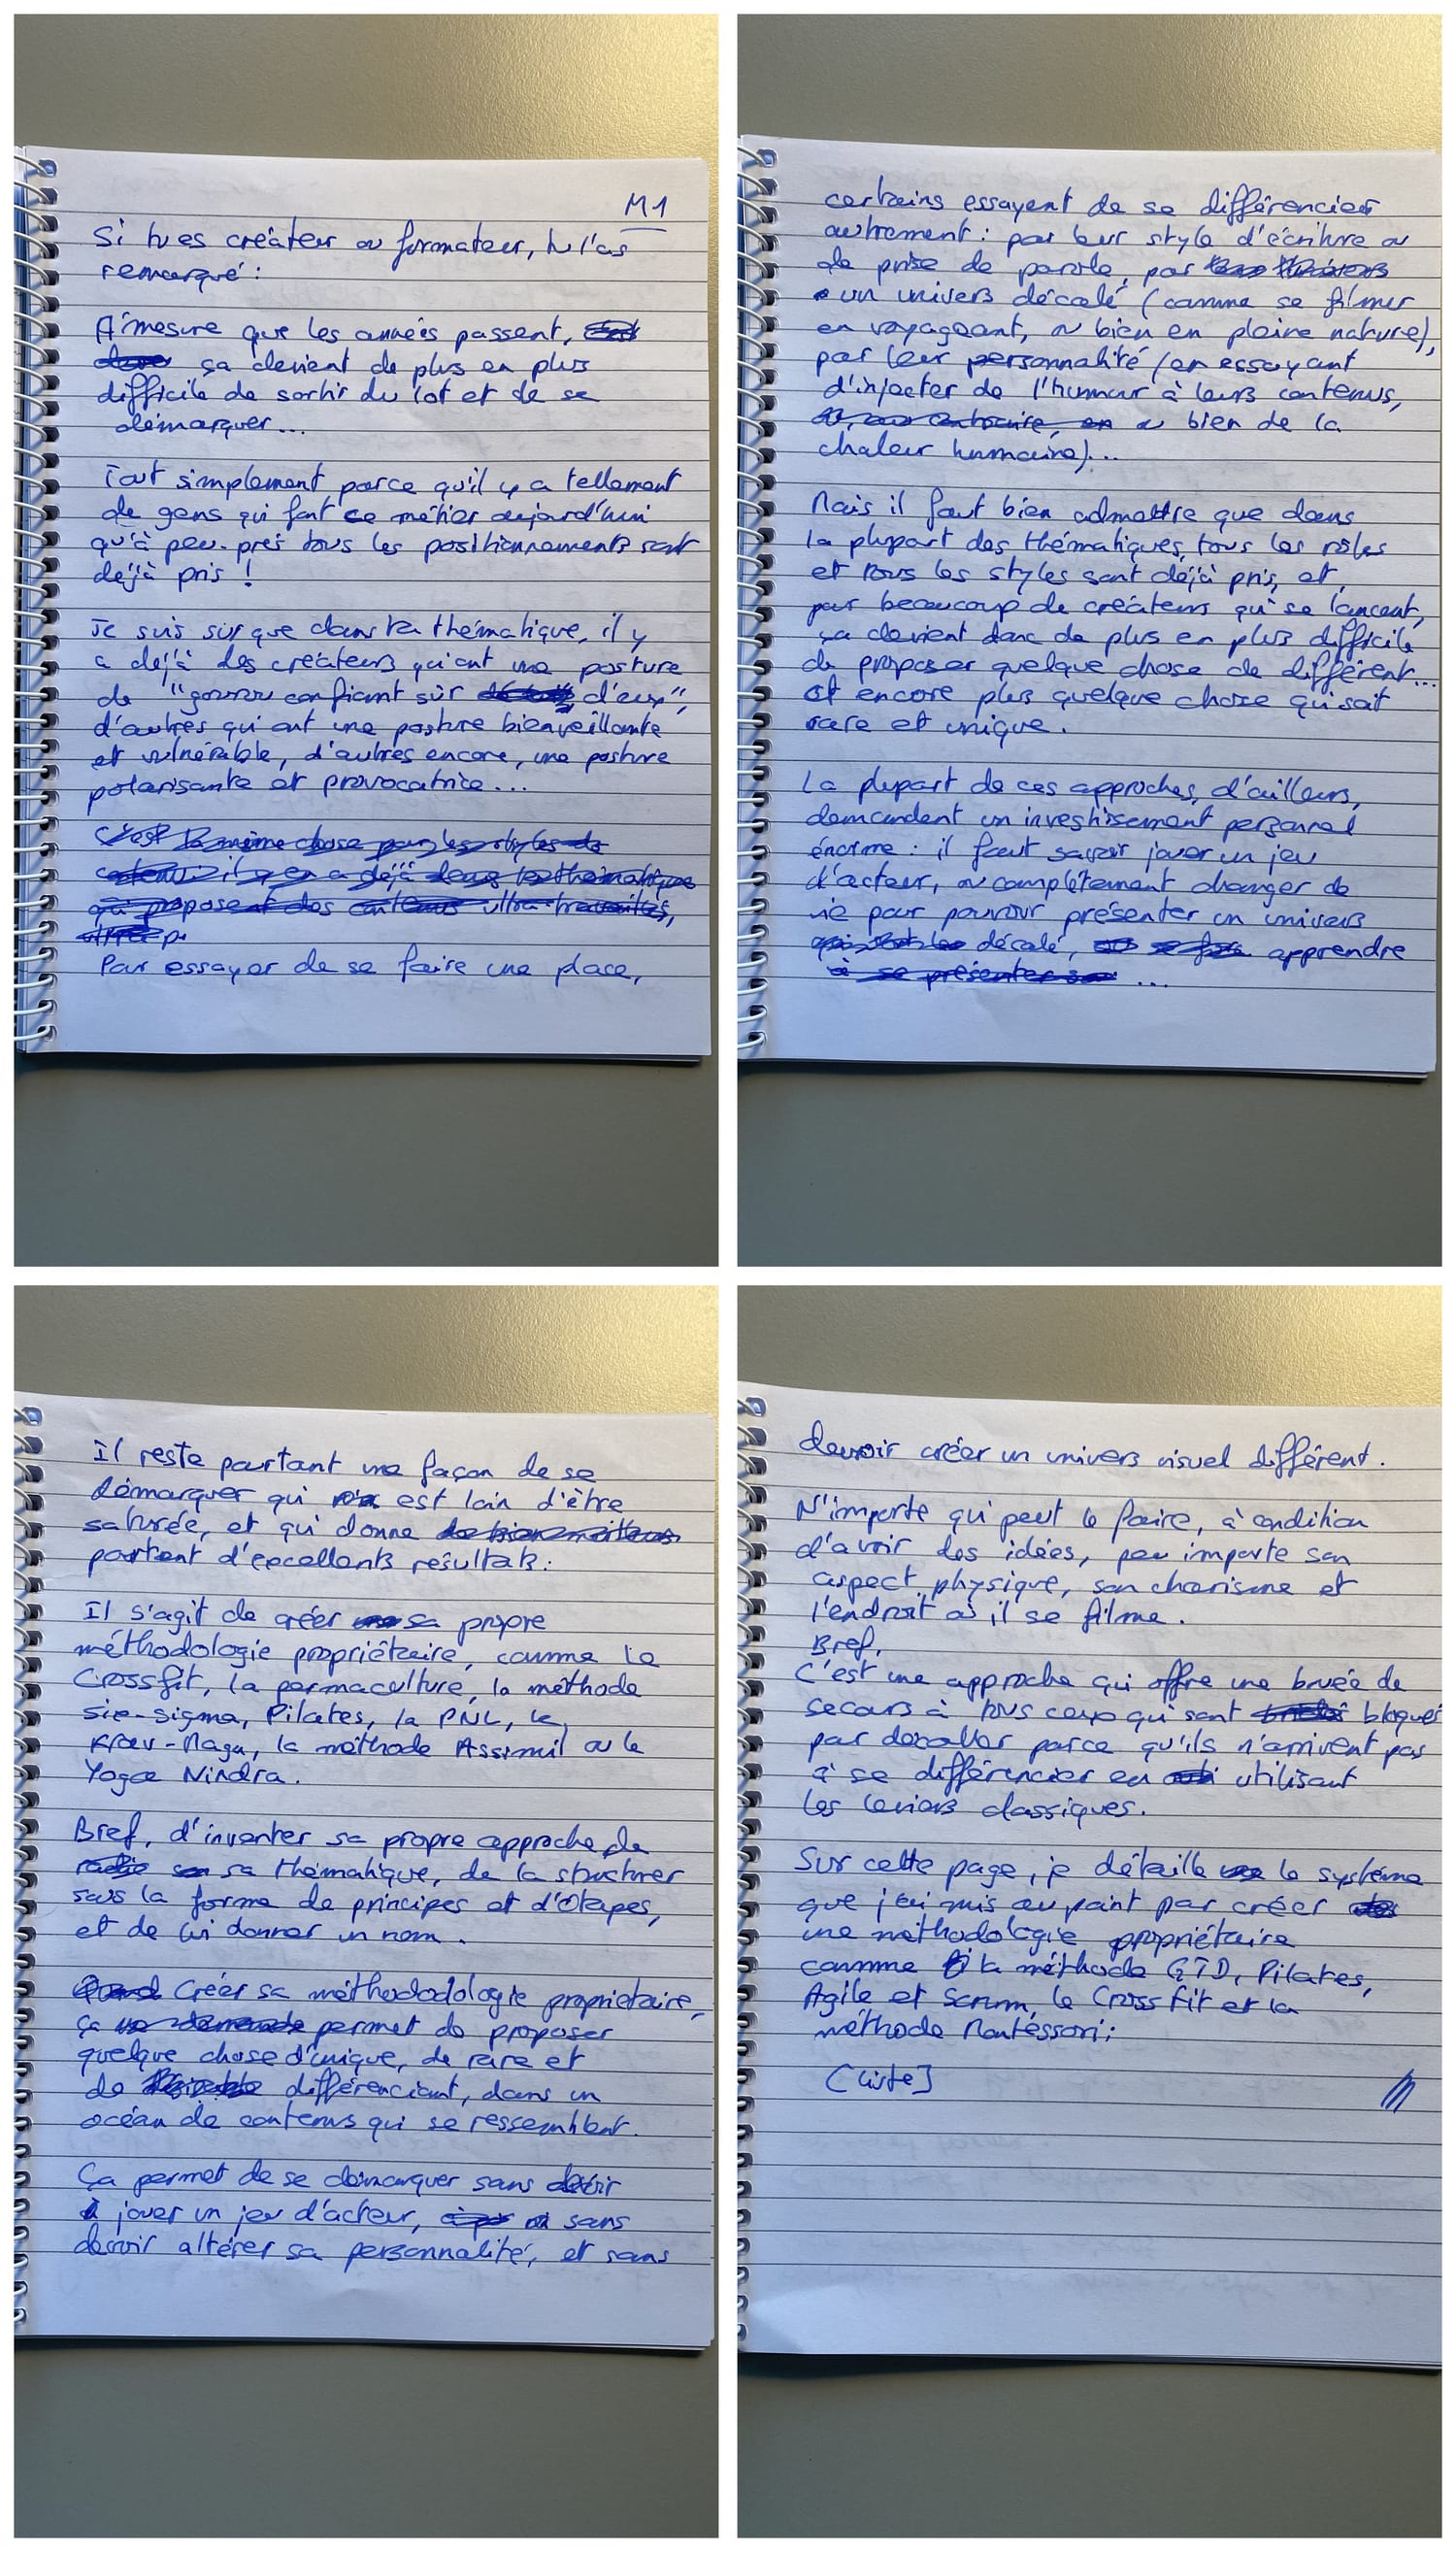 M1
Si tu es créateur ou formateur, tu l'as
remarqué :
A mesure que les années passent,
ça devient de plus en plus
difficile de sortir du lot et de se
démarquer...
Tout simplement parce qu'il y a tellement
de gens qui font ce métier aujourd'hui
qu'à peu-près tous les positionnements sont
déjà pris !
Je suis sûr que dans ta thématique, il y
a déjà des créateurs qui ont une posture
de "gourou confiant sûr d'eux",
d'autres qui ont une posture bienveillante
et vulnérable, d'autres encore, une posture
polarisante et provocatrice...
C'est la même chose pour les styles de
contenu : il y en a déjà dans ta thématique
qui proposent des contenus ultra-travaillés,
Pour essayer de se faire une place,
certains essayent de se différencier
autrement : par leur style d'écriture ou
de prise de parole, par
un univers décalé (comme se filmer
en voyageant, ou bien en pleine nature),
par leur personnalité (en essayant
d'injecter de l'humour à leurs contenus,
ou, au contraire, en ou bien de la
chaleur humaine)...
Mais il faut bien admettre que dans
la plupart des thématiques, tous les rôles
et tous les styles sont déjà pris, et,
pour beaucoup de créateurs qui se lancent,
ça devient donc de plus en plus difficile
de proposer quelque chose de différent...
et encore plus quelque chose qui soit
rare et unique.
La plupart de ces approches, d'ailleurs,
demandent un investissement personnel
énorme : il faut savoir jouer un jeu
d'acteur, ou complètement changer de
vie pour pouvoir présenter un univers
décalé, apprendre
à se présenter ...
Il reste pourtant une façon de se
démarquer qui est loin d'être
saturée, et qui donne
pourtant d'excellents résultats :
Il s'agit de créer sa propre
méthodologie propriétaire, comme le
Crossfit, la permaculture, la méthode
six-sigma, Pilates, la PNL, le
Krav-Maga, la méthode Assimil ou le
Yoga Nindra.
Bref, d'inventer sa propre approche de
sa thématique, de la structurer
sous la forme de principes et d'étapes,
et de lui donner un nom.
Quand Créer sa méthododologie propriétaire,
ça demande permet de proposer
quelque chose d'unique, de rare et
de différenciant, dans un
océan de contenus qui se ressemblent.
Ça permet de se démarquer sans devoir
jouer un jeu d'acteur, sans
devoir altérer sa personnalité, et sans
devoir créer un univers visuel différent.
N'importe qui peut le faire, à condition
d'avoir des idées, peu importe son
aspect physique, son charisme et
l'endroit où il se filme.
Bref,
C'est une approche qui offre une bouée de
secours à tous ceux qui sont bloqués
par décoller parce qu'ils n'arrivent pas
à se différencier en utilisant
les leviers classiques.
Sur cette page, je détaille le système
que j'ai mis au point pour créer
une méthodologie propriétaire
comme la méthode GTD, Pilates,
Agile et Scrum, le Cross fit et la
méthode Montessori :
[Liste]